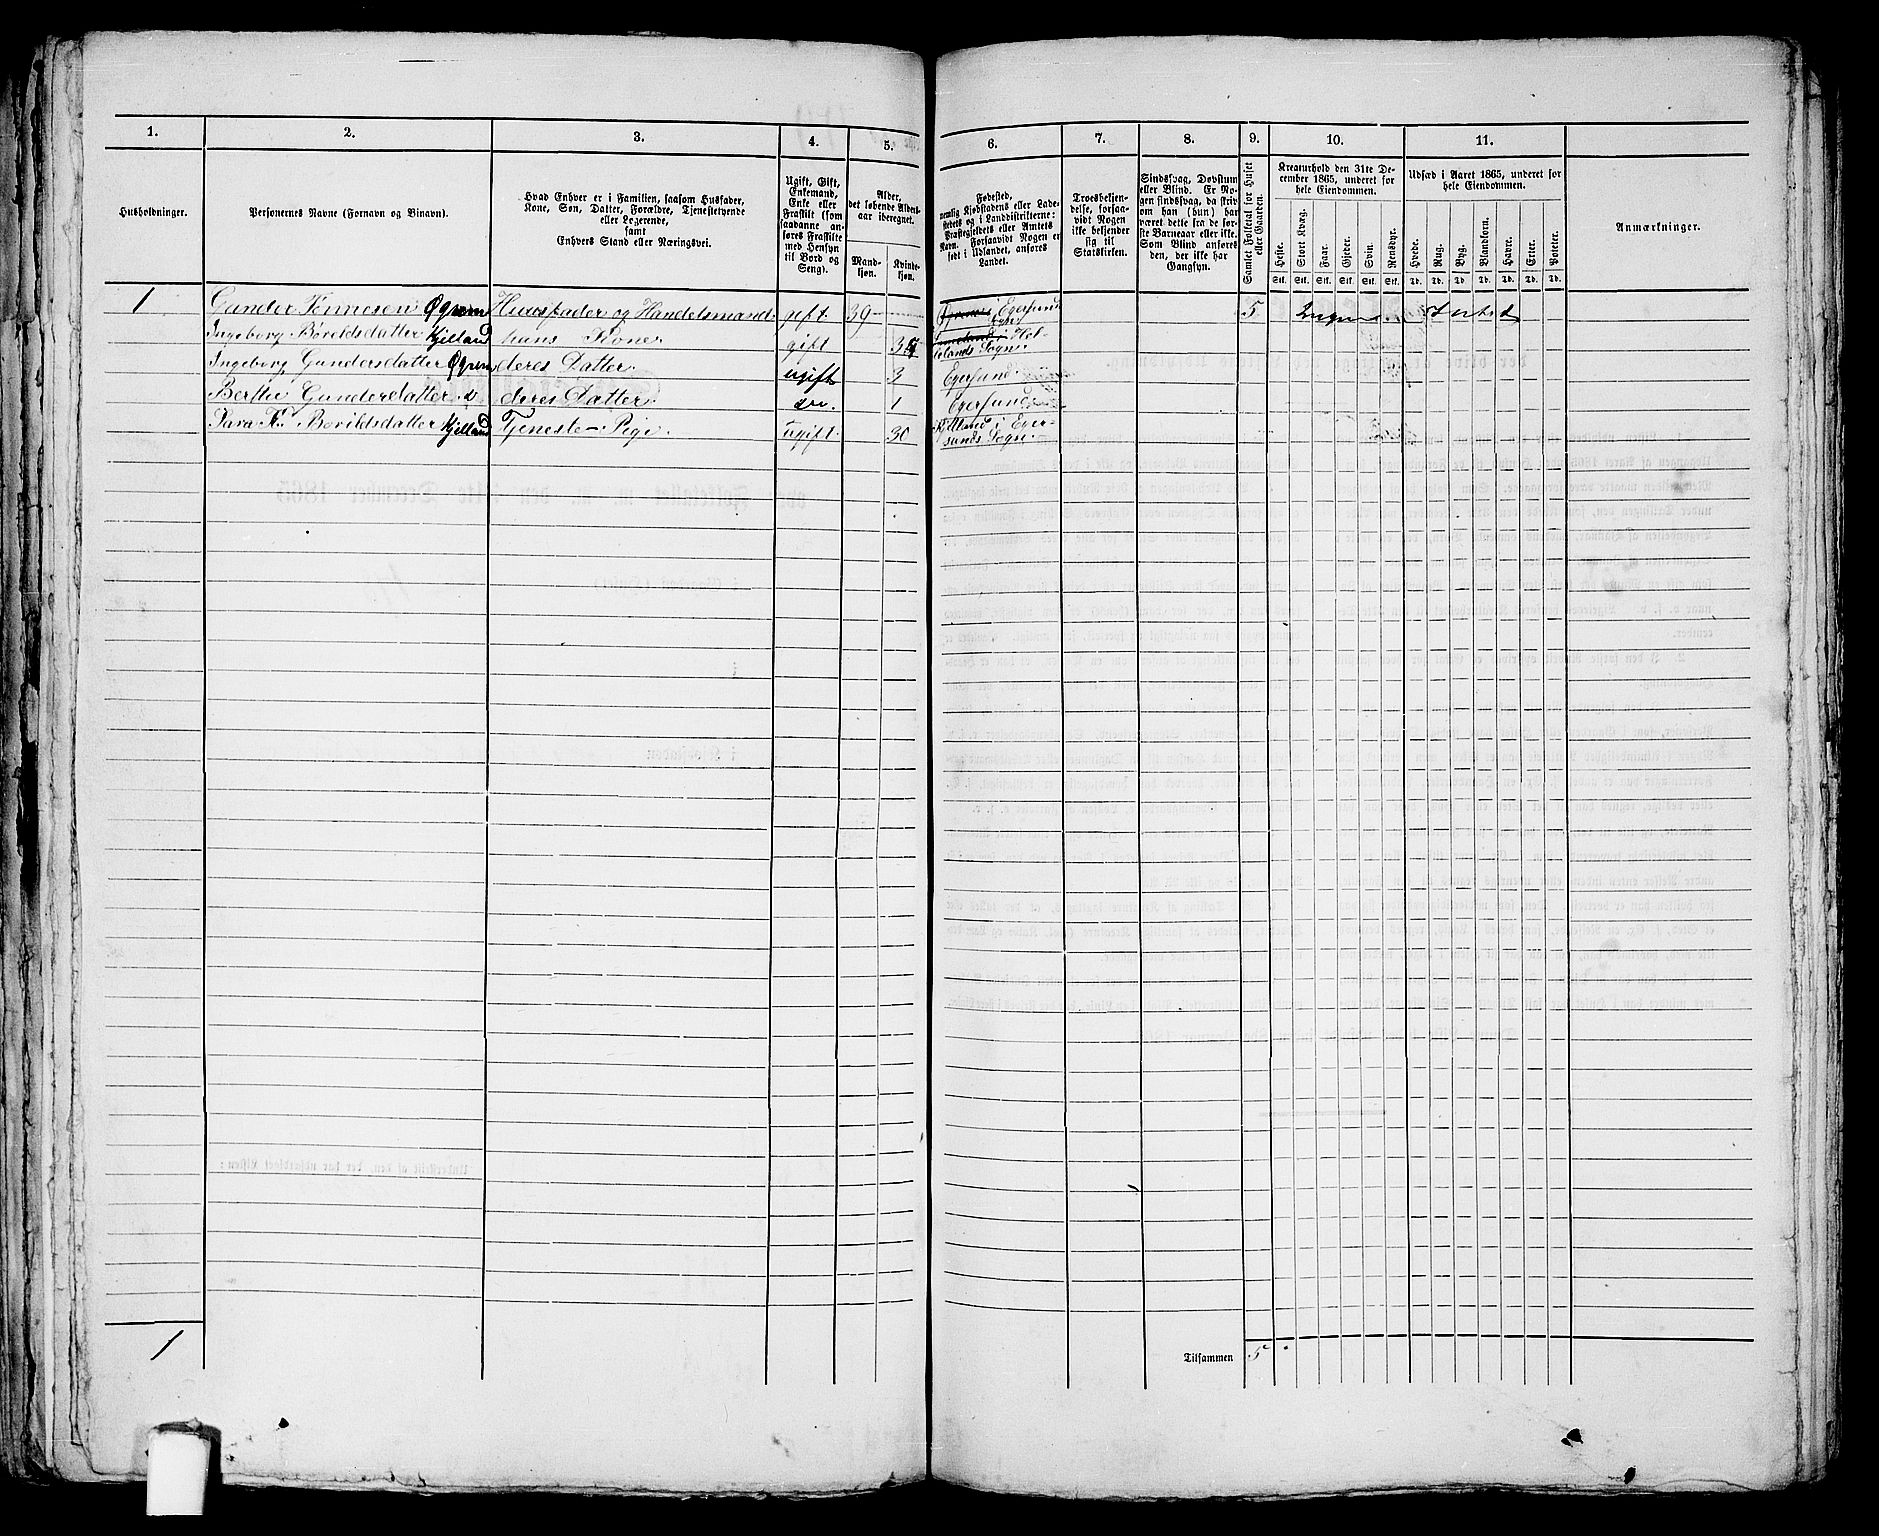 1. 2. 3. 4. 5. 6. 7. 8. 9. 10. 11.
Husholdninger.
Personernes Navne (Fornavn og Binavn).
Hvad Enhver er i Familien, saasom Husfader,
Kone, Søn, Datter, Forældre, Tjenestetyende
eller Logerende,
samt
Enhvers Stand eller Næringsvei.
Ugift, Gift,
Enkemand,
Enke eller
Fraskilt (som
saadanne an-
føres Fraskilte
med Hensyn
til Bord og
Seng).
Alder,
det løbende Alders-
aar iberegnet.
Mand-
kjøn.
Kvinde-
kjøn.
Fødested,
nemlig Kjøbstadens eller Lade-
stedets og i Landdistrikterne:
Præstegjeldets eller Amtets
Navn. Forsaavidt Nogen er
født i Udlandet, anføres
Landet.
Troesbekjen-
delse, forsaa-
vidt Nogen
ikke bekjender
sig til
Statskirken.
Sindssvag, Døvstum
eller Blind. Er No-
gen sindssvag, da skriv
om han (hun) har
været dette fra de før-
ste Barneaar eller ikke.
Som Blind anføres
den, der ikke har
Gangsyn.
Samlet Folketal for Huset
eller Gaarden.
Kreaturhold den 31te De-
cember 1865, underet for
hele Eiendommen.
Heste. Stort Kvæg. Faar. Gjeder. Svin. Rensdyr.
Stk. Stk. Stk. Stk. Stk. Stk.
Udsæd i Aaret 1865, underet for
hele Eiendommen.
Hvede. Rug. Byg. Blandkorn. Havre. Erter. Poteter.
Td. Td. Td Td. Td. Td. Td.
Anmærkninger.
1 Gunder Tønnesen Øgrem Huusfader og Handelsmand gift 39 Egersund 5 Ingen
Ingeborg Boroldsdatter Kjelland hans Kone gift Hel-
lelands Sogn
Ingeborg Gundersdatter Øgrem deres Datter ugift 3 Egersund
Berthe Gundersdatter deres Datter do. 1 Egersund
Sara Boroldsdatter Kjelland Tjeneste-Pige ugift 30 Kjelland i Eger-
sunds Sogn
1
Tilsammen 5